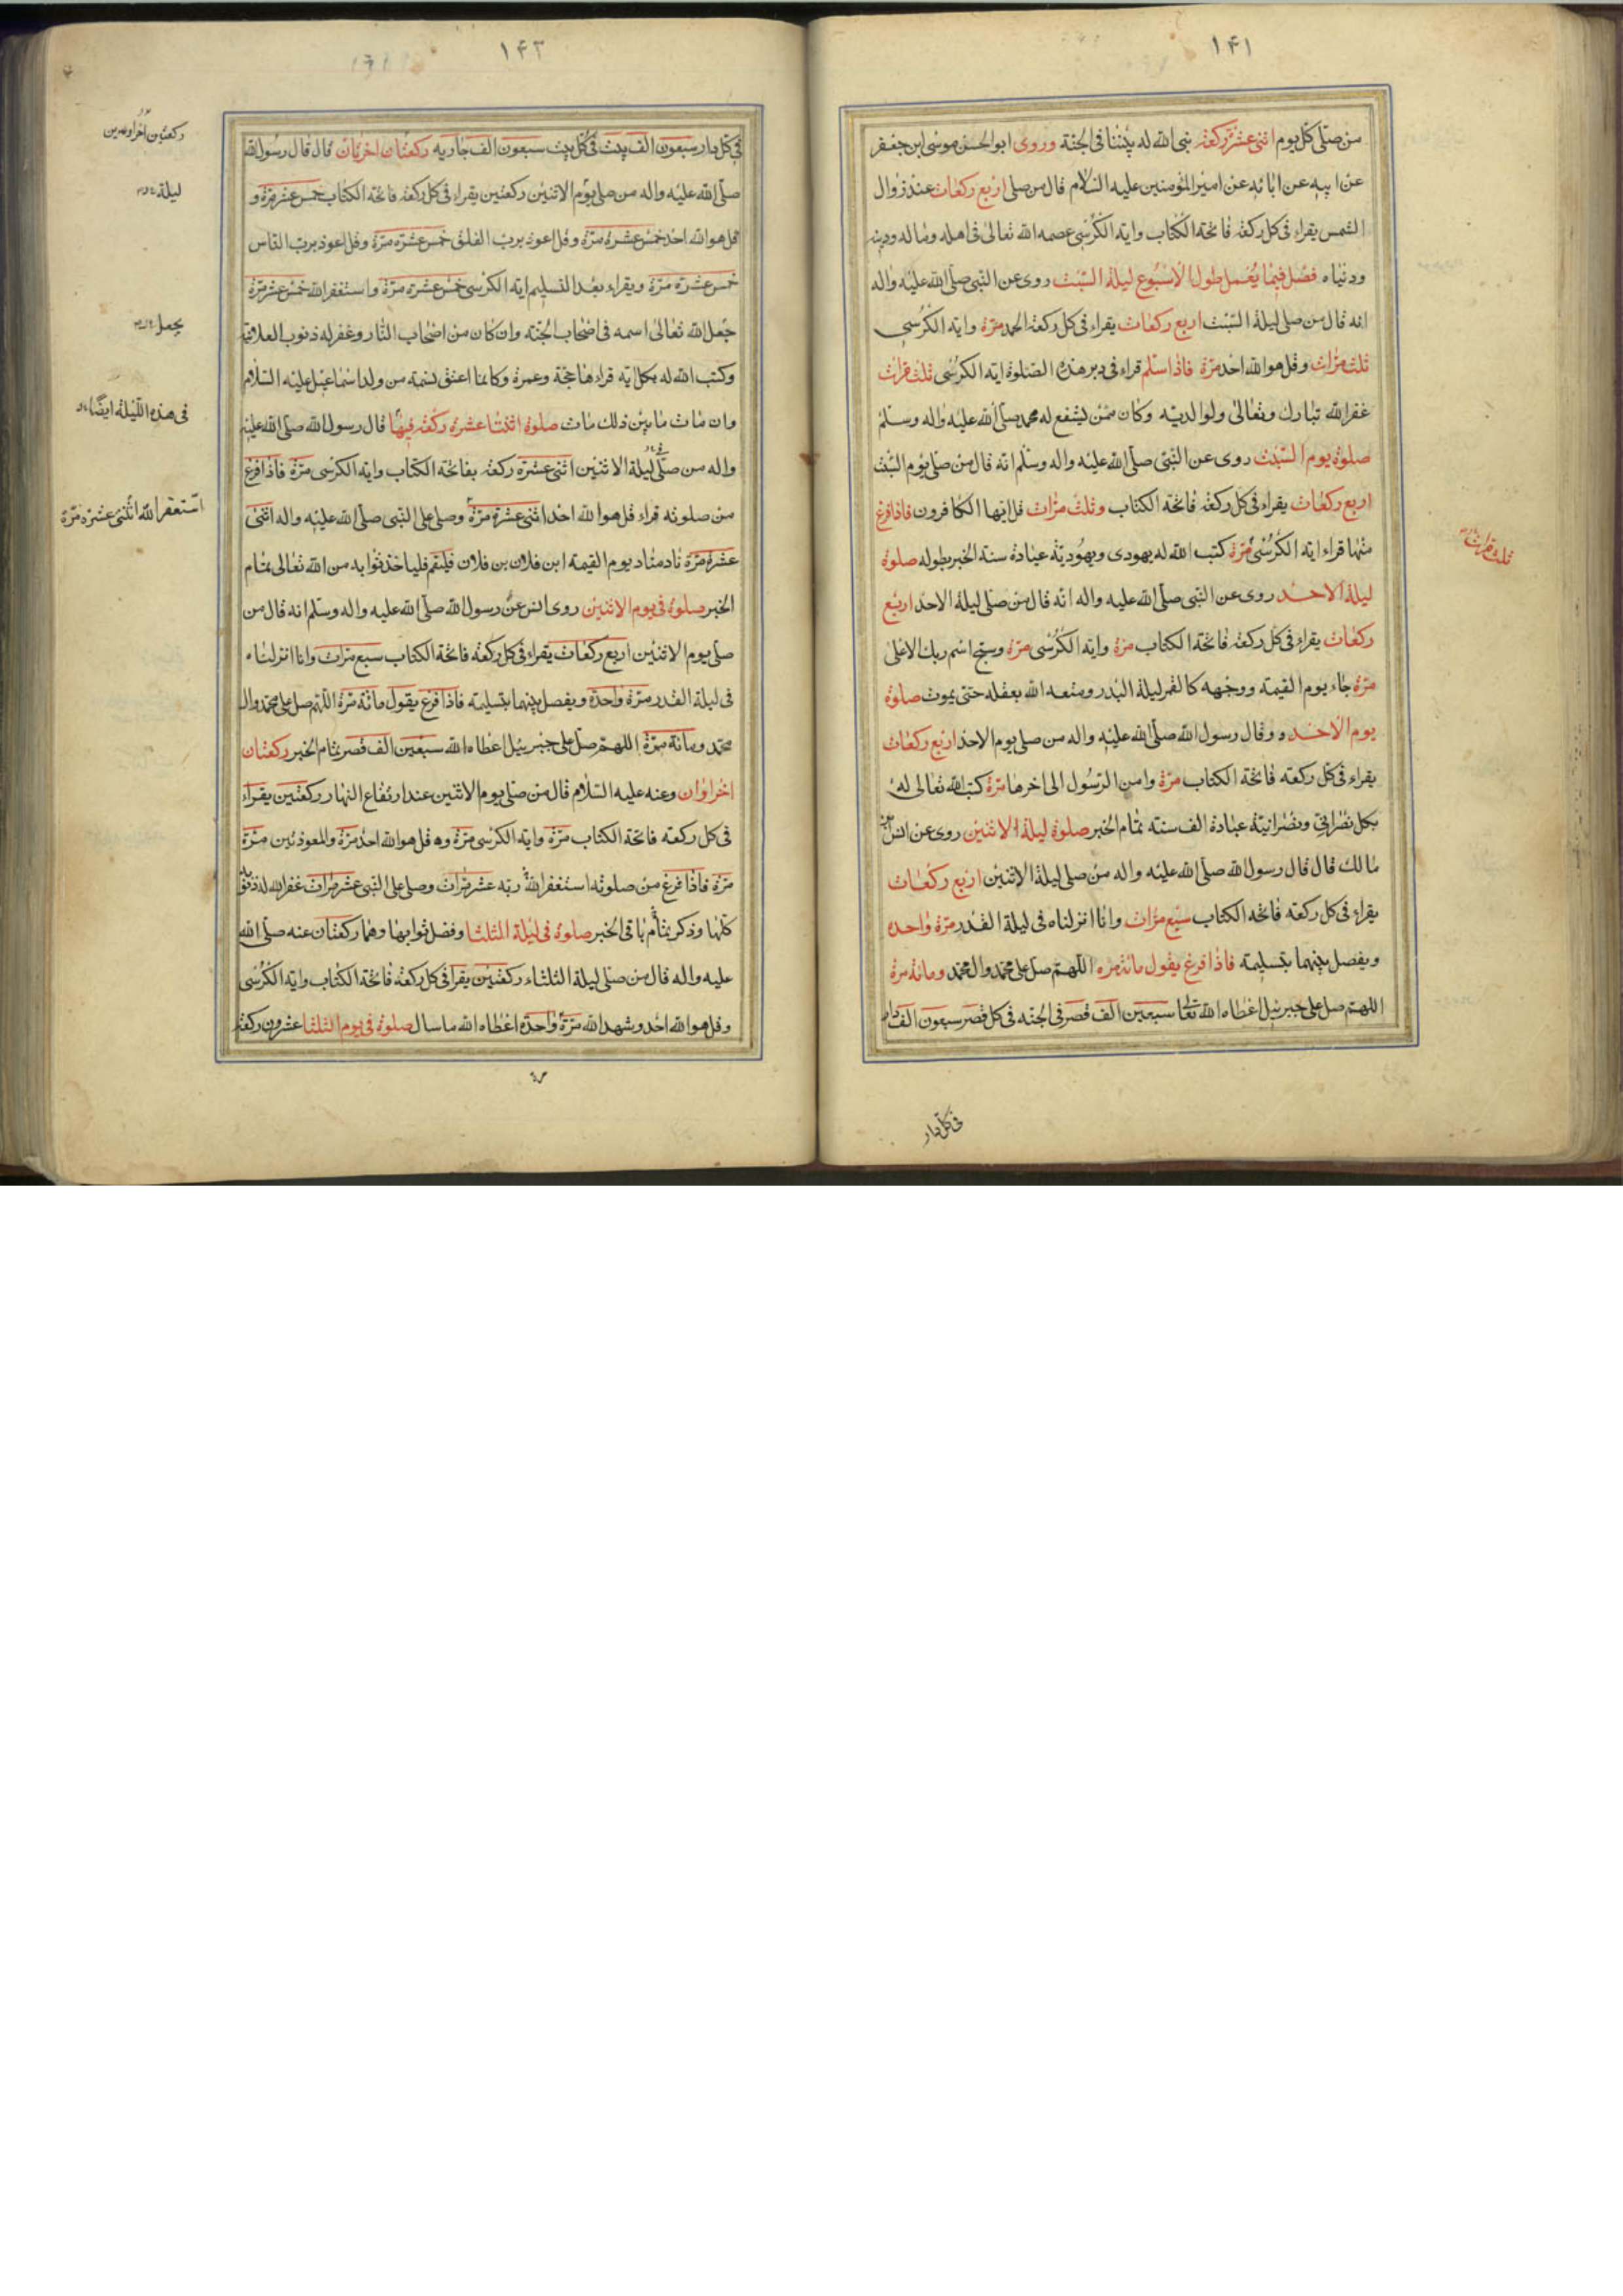 ١۴١
من صلّى كلّ يوم اثنى عشرة ركعة بنى الله له بيتا فى الجنة وروى ابو الحسن موسى ابن جعفر
عن ابيه عن ابائه عن امير المؤمنين عليه السلام قال من صلى اربع ركعات عند زوال
الشمس يقراء فى كل ركعة فاتحة الكتاب واية الكرسى عصمه الله تعالى فى اهله وماله ودينه
ودنياه فصل فيما يعمل طول الاسبوع ليلة السبت روى عن النبى صلّى الله عليه واله
انه قال من صلى ليلة السبت اربع ركعات يقراء فى كل ركعة الحمد مرّة واية الكرسى
ثلث مرّات وقل هو الله احد مرّة فاذا سلّم قراء فى دبر هذه الصلوة اية الكرسى ثلث مرّات
غفر الله تبارك وتعالى له ولوالديه وكان ممّن يشفع له محمد صلّى الله عليه واله وسلم
صلوة يوم السبت روى عن النبى صلّى الله عليه واله وسلم انه قال من صلّى يوم السبت
اربع ركعات يقراء فى كل ركعة فاتحة الكتاب وثلث مرّات قل ايها الكافرون فاذا فرغ
منها قراء اية الكرسى مرّة كتب الله له بيهودى ويهودية عبادة سنة الخبر بطوله صلوة
ليلة الاحد روى عن النبى صلّى الله عليه واله انه قال من صلّى ليلة الاحد اربع
ركعات يقراء فى كل ركعة فاتحة الكتاب مرّة واية الكرسى مرّة وسبح اسم ربك الاعلى
مرّة جاء يوم القيمة ووجهه كالقمر ليلة البدر ومتعه الله بعقله حتى يموت صلوة
يوم الاحد وقال رسول الله صلّى الله عليه واله من صلى يوم الاحد اربع ركعات
يقراء فى كل ركعة فاتحة الكتاب مرّة وامن الرّسول الى اخرها مرّة كتب الله تعالى له
بكل نصرانى ونصرانية عبادة الف سنة تمام الخبر صلوة ليلة الاثنين روى عن انس بن
مالك قال قال رسول الله صلّى الله عليه واله من صلى ليلة الاثنين اربع ركعات
يقراء فى كل ركعة فاتحة الكتاب سبع مرّات وانا انزلناه فى ليلة القدر مرّة واحدة
ويفصل بينهما بتسليمة فاذا فرغ يقول مائة مرة اللهم صلّ على محمد وال محمد ومائة مرة
اللهم صل على جبرئيل اعطاه الله تعا سبعين الف قصر فى الجنة فى كل قصر سبعون الف دار
ثلث مرّات
فى كل دار
١۴٢
فى كل دار سبعون الف بيت فى كل بيت سبعون الف جارية ركعتان اخريان قال قال رسول الله
صلّى الله عليه واله من صلى يوم الاثنين ركعتين يقراء فى كل ركعة فاتحة الكتاب خمس عشر مرّة و
قل هو الله احد خمس عشرة مرّة وقل اعوذ برب الفلق خمس عشرة مرّة وقل اعوذ برب الناس
خمس عشرة مرّة ويقراء بعد التسليم اية الكرسى خمس عشرة مرّة واستغفر الله خمس عشر مرّة
جعل الله تعالى اسمه فى اصحاب الجنة وان كان من اصحاب النار وغفر له ذنوب العلانية
وكتب الله له بكل اية قراءها حجّة وعمرة وكانما اعتق نسمة من ولد اسماعيل عليه السلام
وان مات ما بين ذلك مات صلوة اثنتا عشرة ركعة فيها قال رسول الله صلّى الله عليه
واله من صلّى ليلة الاثنين اثنى عشرة ركعة بفاتحة الكتاب واية الكرسى مرّة فاذا فرغ
من صلوته قراء قل هو الله احد اثنى عشرة مرّة وصلى على النبى صلّى الله عليه واله اثنى
عشرة مرّة ناد مناد يوم القيمة ابن فلان بن فلان فليقم فلياخذ ثوابه من الله تعالى تمام
الخبر صلوة فى يوم الاثنين روى انس عن رسول الله صلّى الله عليه واله وسلم انه قال من
صلّى يوم الاثنين اربع ركعات يقراء فى كل ركعة فاتحة الكتاب سبع مرّات وانا انزلناه
فى ليلة القدر مرّة واحدة ويفصل بينهما بتسليمة فاذا فرغ يقول مائة مرّة اللّهم صل على محمد وال
محمّد ومائة مرّة اللهم صلّ على جبرئيل اعطاه الله سبعين الف قصر تمام الخبر ركعتان
اخراوان وعنه عليه السّلام قال من صلى يوم الاثنين عند ارتفاع النهار ركعتين يقراء
فى كل ركعة فاتحة الكتاب مرّة واية الكرسى مرّة وقل هو الله احد مرّة والمعوذتين مرّة
مرّة فاذا فرغ من صلوته استغفر الله ربه عشر مرّات وصلى على النبى عشر مرّات غفر الله له ذنوبه
كلّها وذكر تمام باقى الخبر صلوة فى ليلة الثلثا وفضل ثوابها وهما ركعتان عنه صلّى الله
عليه واله قال من صلى ليلة الثلثاء ركعتين يقرا فى كل ركعة فاتحة الكتاب واية الكرسى
وقل هو الله احد وشهد الله مرّة واحدة اعطاه الله ما سال صلوة فى يوم الثلثا عشرون ركعة
ركعتين اخراوين
ليلة
يجعل
فى هذه اللّيلة ايضًا
استغفر الله اثنى عشرة مرّة